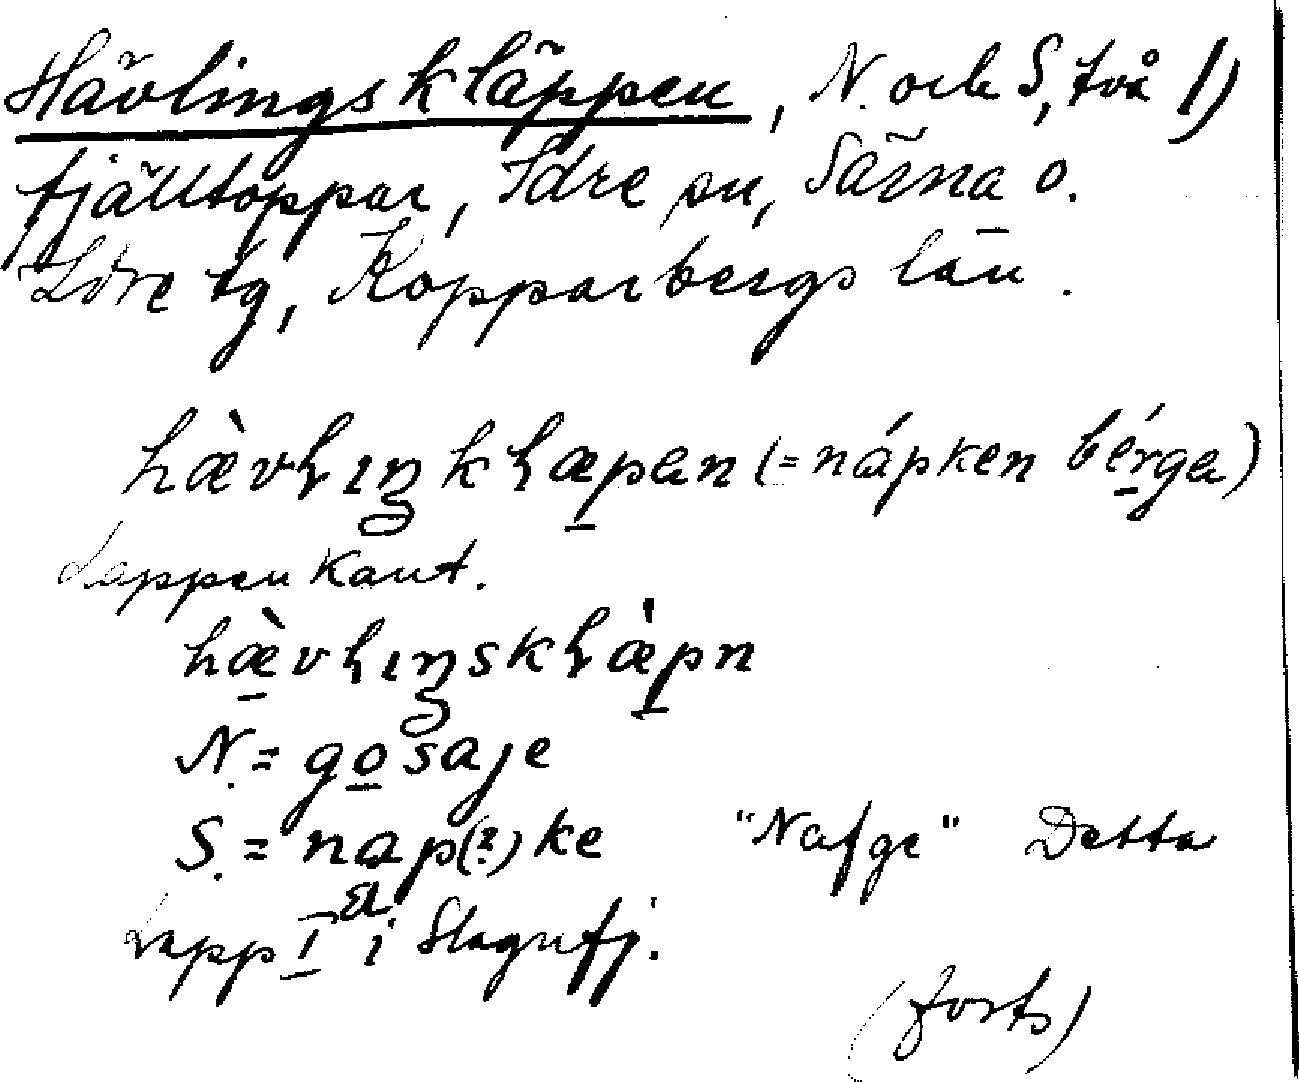 Hävlingskläppen, N. och S, två 1)
fjälltoppar, Idre sn, Särna o.
Idre tg, Kopparbergs län.
hævl̨ıŋkl̨æpen (= nápken bérge)
Lappen Kant.
hæ̀vl̨ıŋskl̨æ̀pn
N. = gosaje
S. = nap(?)ke "Nafge" Detta
Lapp i Slagufj.
(forts)